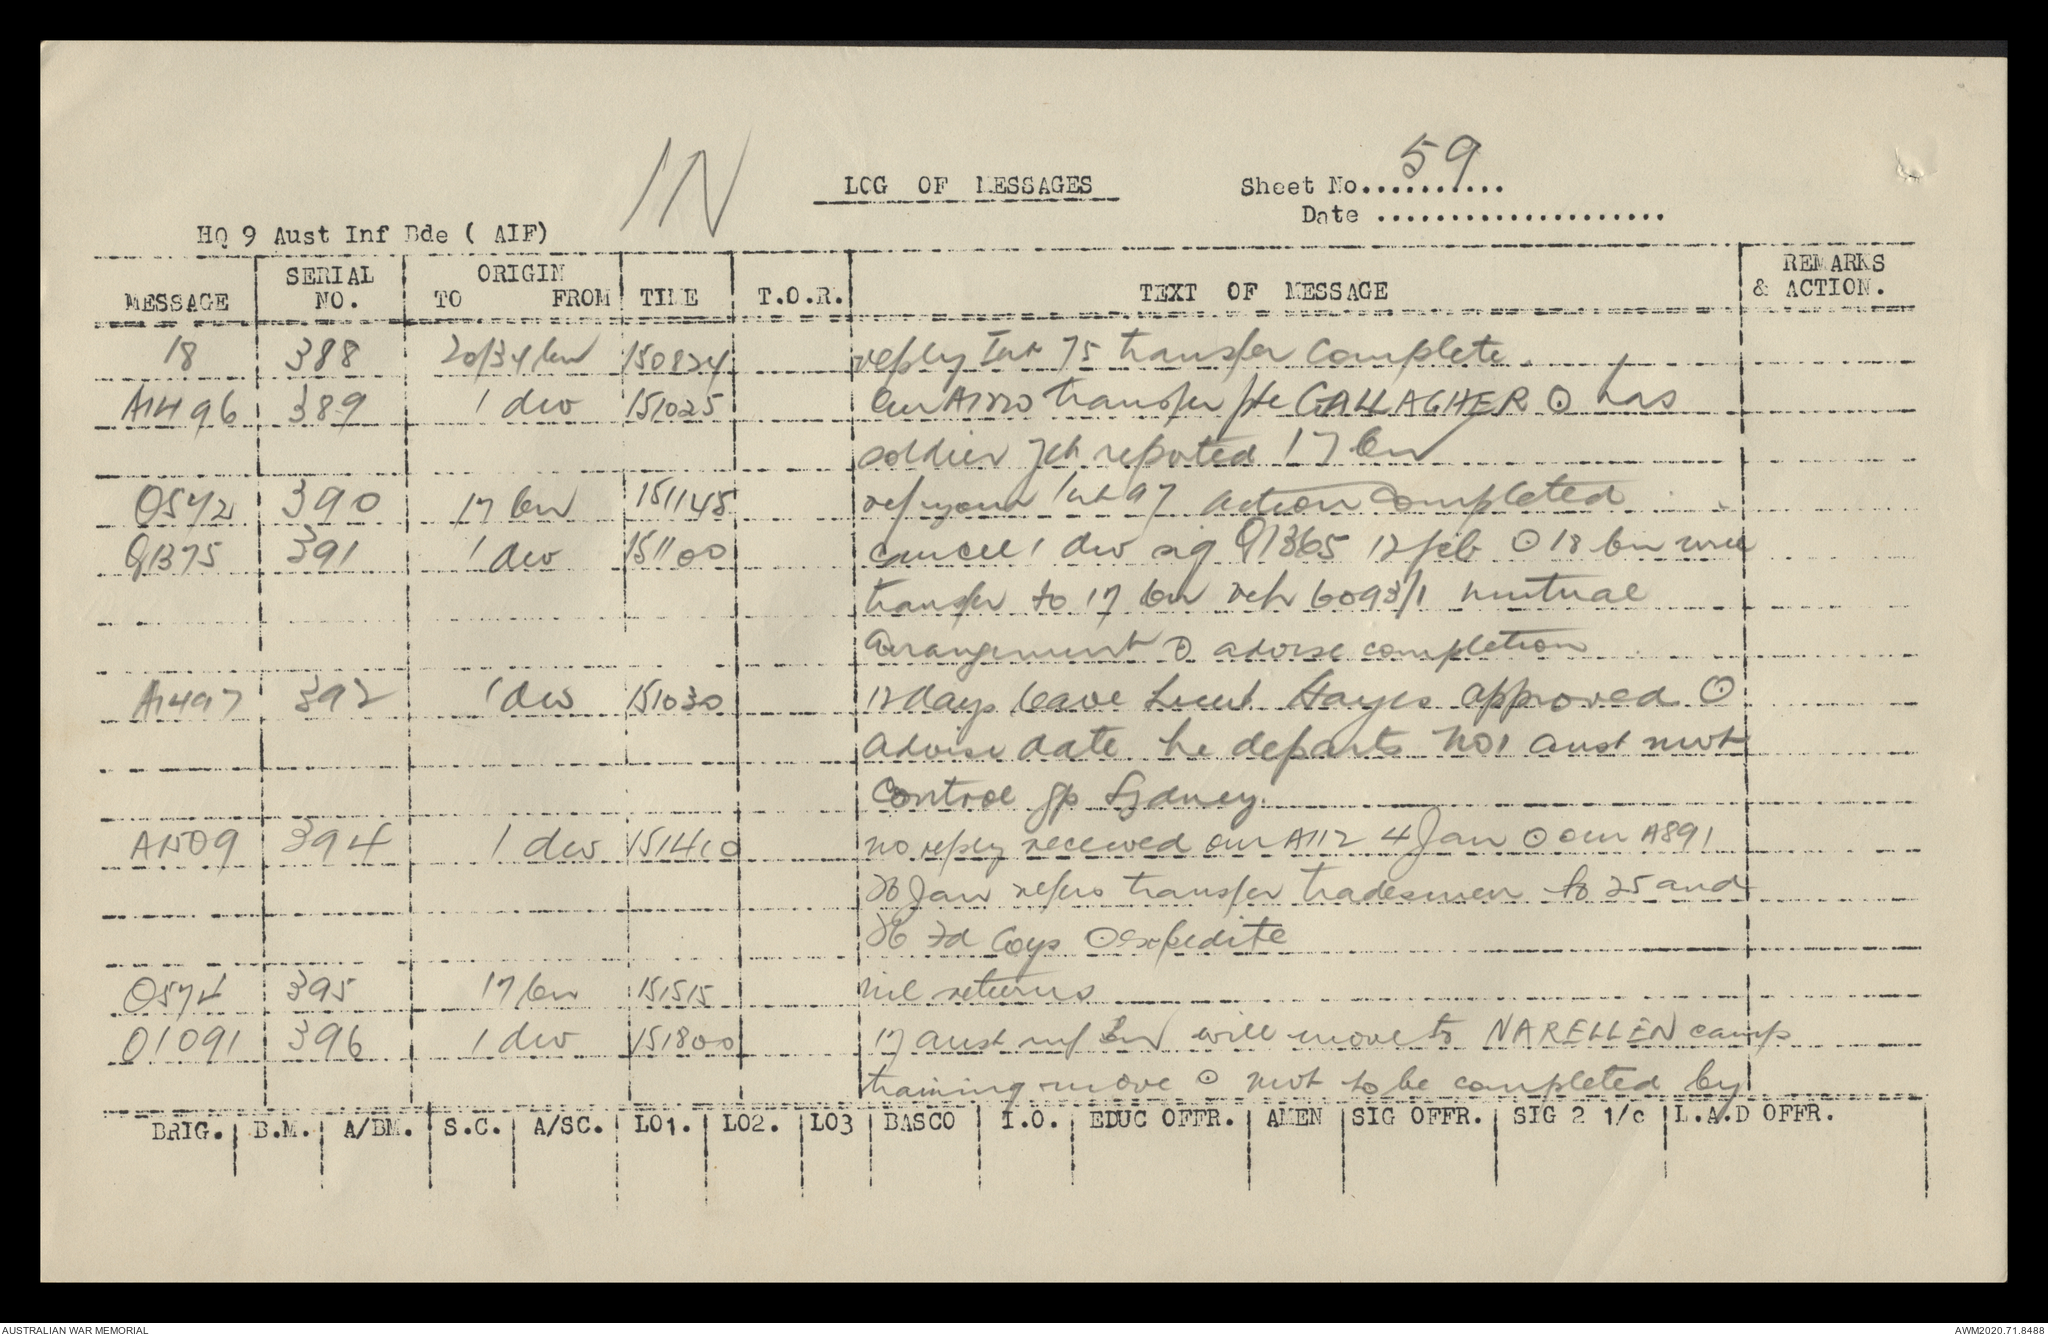 59
IN
LOG OF MESSAGES
Sheet No..........
Date ....................
HQ 9 Aust Inf Bde ( AIF)
MESSAGE SERIAL NO. ORIGIN TO FROM TIME T.O.R. TEXT OF MESSAGE REMARKS & ACTION.
18 388 20/34 bn 150824 reply Int 75 transfer complete.
A1496 389 1 div 151025 Our transfer pte GALLAGHER ⊙ has
soldier yet reported 17 bn
O572 390 17 bn 151145 ref your Int 97 action completed
Q1375 391 1 div 151100 cancel 1 div sig Q1365 12 feb ⊙ 18 bn will
transfer to 17 bn veh 6093/1 mutual
arrangement ⊙ advise completion
A1497 392 1 div 151030 12 days leave Lieut Hayes approved ⊙
advise date he departs No1 aust mvt
control gp Sydney.
A1509 394 1 div 151410 no reply received our A112 4 Jan ⊙ our A891
26 Jan refers transfer tradesmen to 25 and
26 Fd Coys ⊙ expedite
O574 395 17 bn 151515 nil returns
O1091 396 1 div 151800 17 aust inf Bn will move to NARELLEN camp
training move ⊙ mvt to be completed by
BRIG. B.M. A/BM. S.C. A/SC. LO1. LO2. LO3 BASCO I.O. EDUC OFFR. AMEN SIG OFFR. SIG 2 1/c L.A.D OFFR.
AUSTRALIAN WAR MEMORIAL AWM2020.71.8488